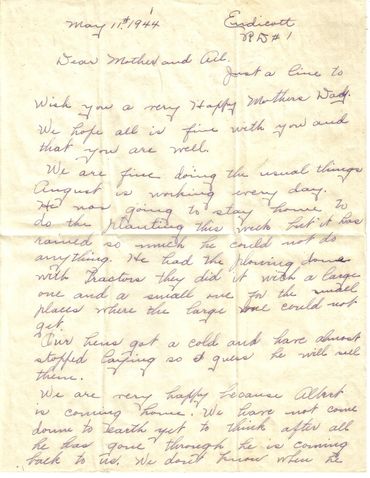 May 11th 1944
Endicott
RD#1
Dear Mother and All.
Just a line to
Wish you a very Happy Mothers Day.
We hope all is fine with you and
that you are well.
We are fine doing the usual things
August is working every day.
He was going to stay home to
do the planting this week but it has
rained so much he could not do
anything. He had the plowing done
with tractors they did it with a large
one and a small one for the small
places where the large one could not
get.
Our hens got a cold and have almost
stopped laying so I guess he will sell
them.
We are very happy because Albert
is coming home. We have not come
down to earth yet to think after all
he has gone through he is coming
back to us. We don't know when he